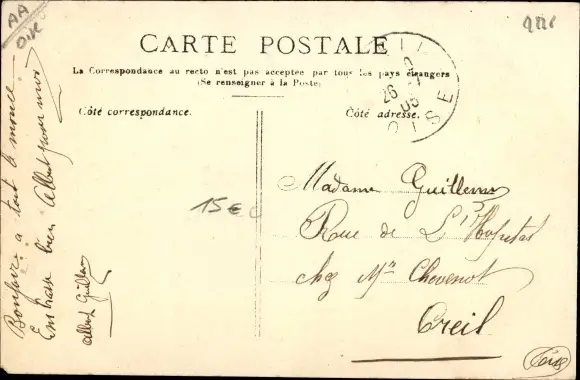 AA
Oise
CARTE POSTALE
La Correspondance au recto n'est pas acceptee par tous les pays étrangers
(Se renseigner à la Poste)
Côté correspondance.
Côté adresse.
26
OISE
Bonjour a tout le monde
Embrasse bien Albert pour moi
Albert Guillem
15€
Madame Guillem
15
Rue de L'Hopital
chez Mr Chevenot
Creil
Oise